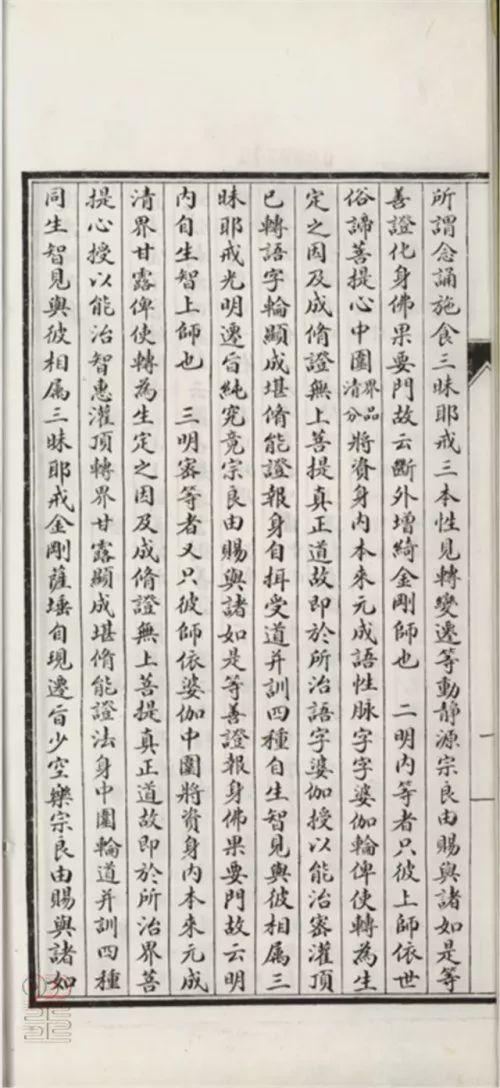 所謂念誦施食三昧耶戒三本性見轉變遷等動靜源宗良由賜與諸如是等
善證化身佛果要門故云斷外增綺金剛師也　二明內等者只彼上師依世
俗諦菩提心中圍清界分品將資身內本來元成語性脉字字婆伽輪俾使轉為生
定之因及成脩證無上菩提真正道故即於所治語字婆伽授以能治密灌頂
已轉語字輪顯成堪脩能證報身自揖受道并訓四種自生智見與彼相屬三
昧耶戒光明遷旨純究竟宗良由賜與諸如是等善證報身佛果要門故云明
內自生智上師也　三明密等者又只彼師依婆伽中圍將資身內本來元成
清界甘露俾使轉為生定之因及成脩證無上菩提真正道故即於所治界菩
提心授以能治智惠灌頂轉界甘露顯成堪脩能證法身中圍輪道并訓四種
同生智見與彼相屬三昧耶戒金剛薩埵自現遷旨少空樂宗良由賜與諸如